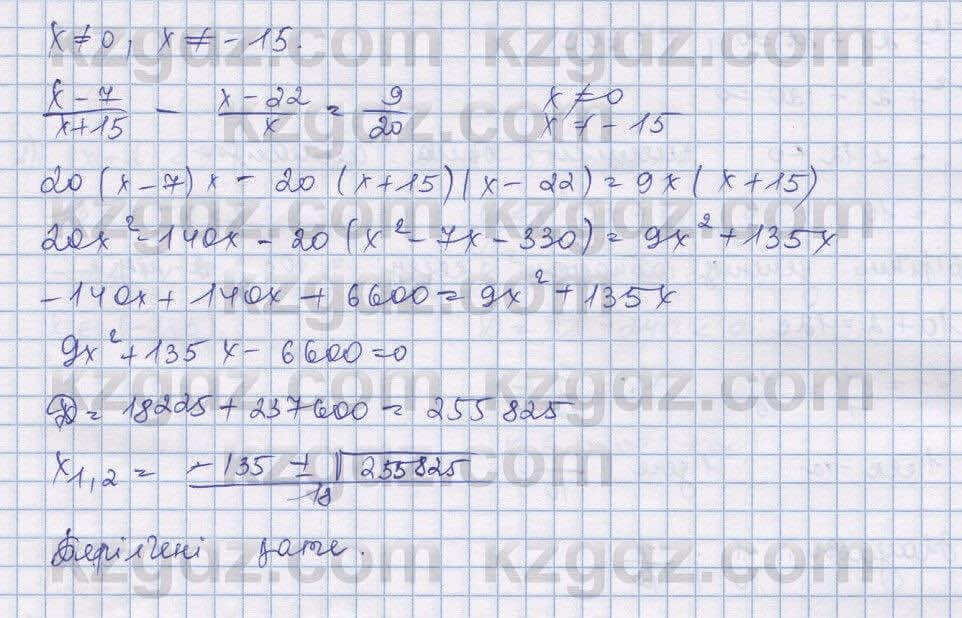 x ≠ 0, x ≠ -15.
(x - 7)/(x + 15) - (x - 22)/x = 9/20    x ≠ 0
x ≠ -15
20(x-7)x - 20(x+15)(x-22) = 9x(x+15)
20x² - 140x - 20(x² - 7x - 330) = 9x² + 135x
-140x + 140x + 6600 = 9x² + 135x
9x² + 135x - 6600 = 0
D = 18225 + 237600 = 255825
x₁,₂ = (-135 ± √255825)/18
Берілгені қате.
kzgdz.com kzgdz.com
kzgdz.com kzgdz.com
kzgdz.com kzgdz.com
kzgdz.com kzgdz.com
kzgdz.com kzgdz.com
kzgdz.com kzgdz.com
kzgdz.com kzgdz.com